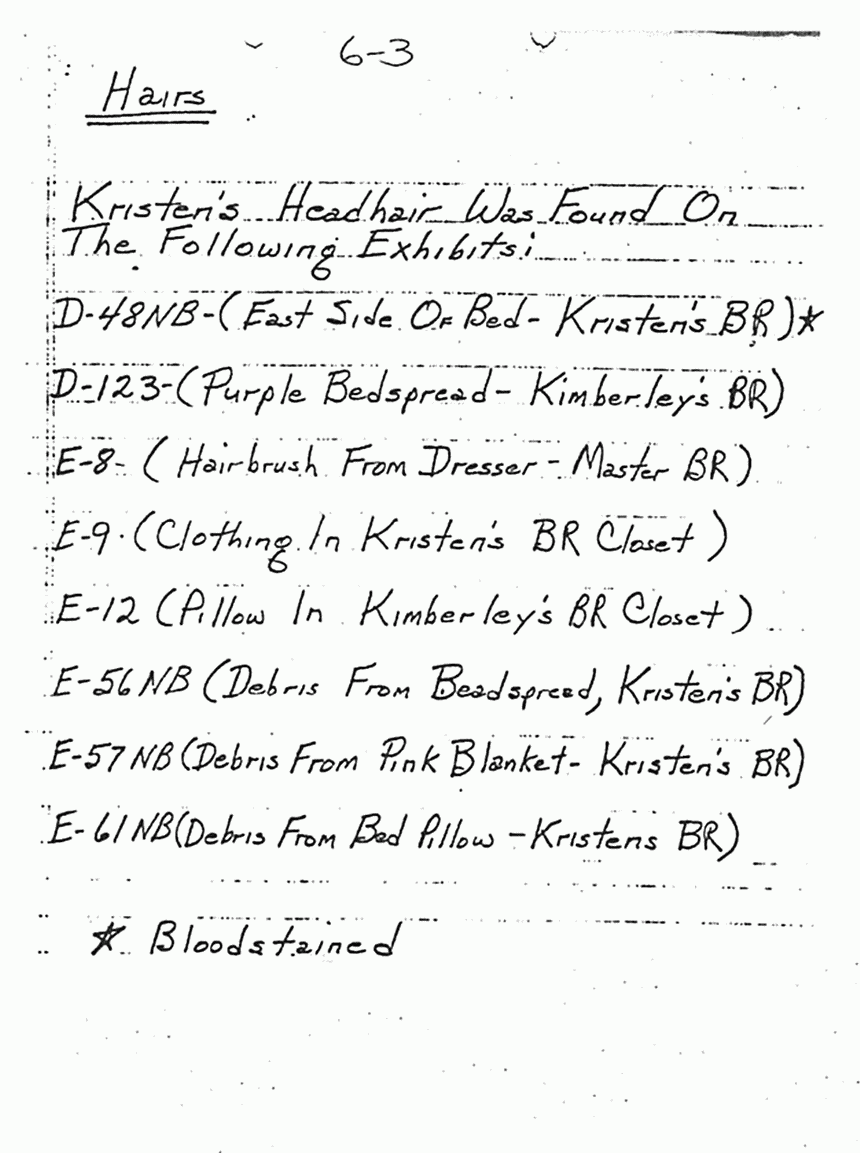 6-3
Hairs
Kristen's Headhair Was Found On
The Following Exhibits:
D-48NB-(East Side Of Bed- Kristen's BR)★
D-123-(Purple Bedspread- Kimberley's BR)
E-8- (Hairbrush From Dresser- Master BR)
E-9-(Clothing In Kristen's BR Closet)
E-12 (Pillow In Kimberley's BR Closet)
E-56NB (Debris From Beadspread, Kristen's BR)
E-57NB (Debris From Pink Blanket- Kristen's BR)
E-61NB (Debris From Bed Pillow -Kristens BR)
★ Bloodstained